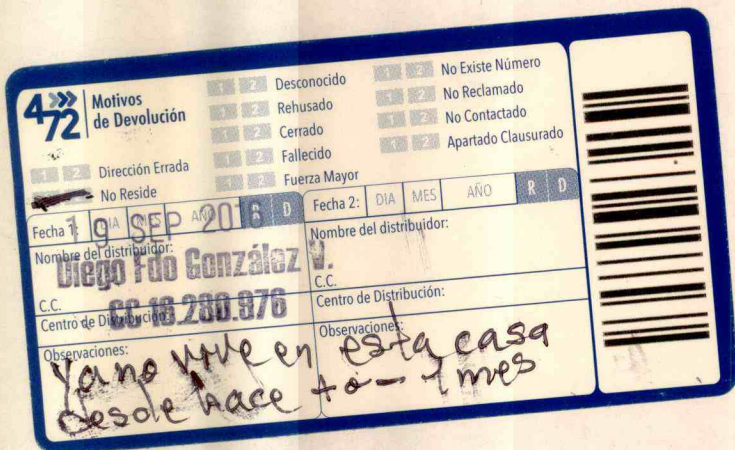 472
Motivos
de Devolución
1 2 Desconocido
1 2 Rehusado
1 2 Cerrado
1 2 Fallecido
1 2 Fuerza Mayor
1 2 No Existe Número
1 2 No Reclamado
1 2 No Contactado
1 2 Apartado Clausurado
1 2 Dirección Errada
No Reside
Fecha 1: DIA MES AÑO R D
19 SEP 2016
Nombre del distribuidor:
Diego Fdo González V.
C.C.
CC 16.280.976
Centro de Distribución:
Observaciones:
Fecha 2: DIA MES AÑO R D
Nombre del distribuidor:
C.C.
Centro de Distribución:
Observaciones:
Ya no vive en esta casa
desde hace + o - 1 mes